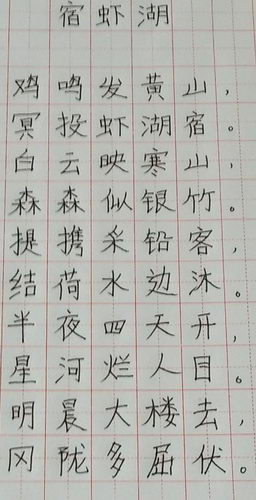 宿虾湖
鸡鸣发黄山，
冥投虾湖宿。
白云映寒山，
森森似银竹。
提携采铅客，
结荷水边沐。
半夜四天开，
星河烂人目。
明晨大楼去，
冈陇多屈伏。